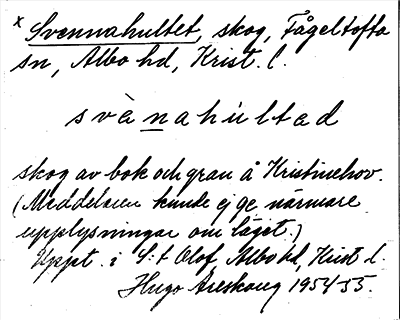 x Svennahultet, skog, Fågeltofta
sn, Albo hd, Krist. l.
svènahúltad
skog av bok och gran å Kristinehov.
(Meddelaren kunde ej ge närmare
upplysningar om läget.)
Uppt. i S:t Olof, Albo hd, Krist l.
Hugo Areskoug 1954-55.